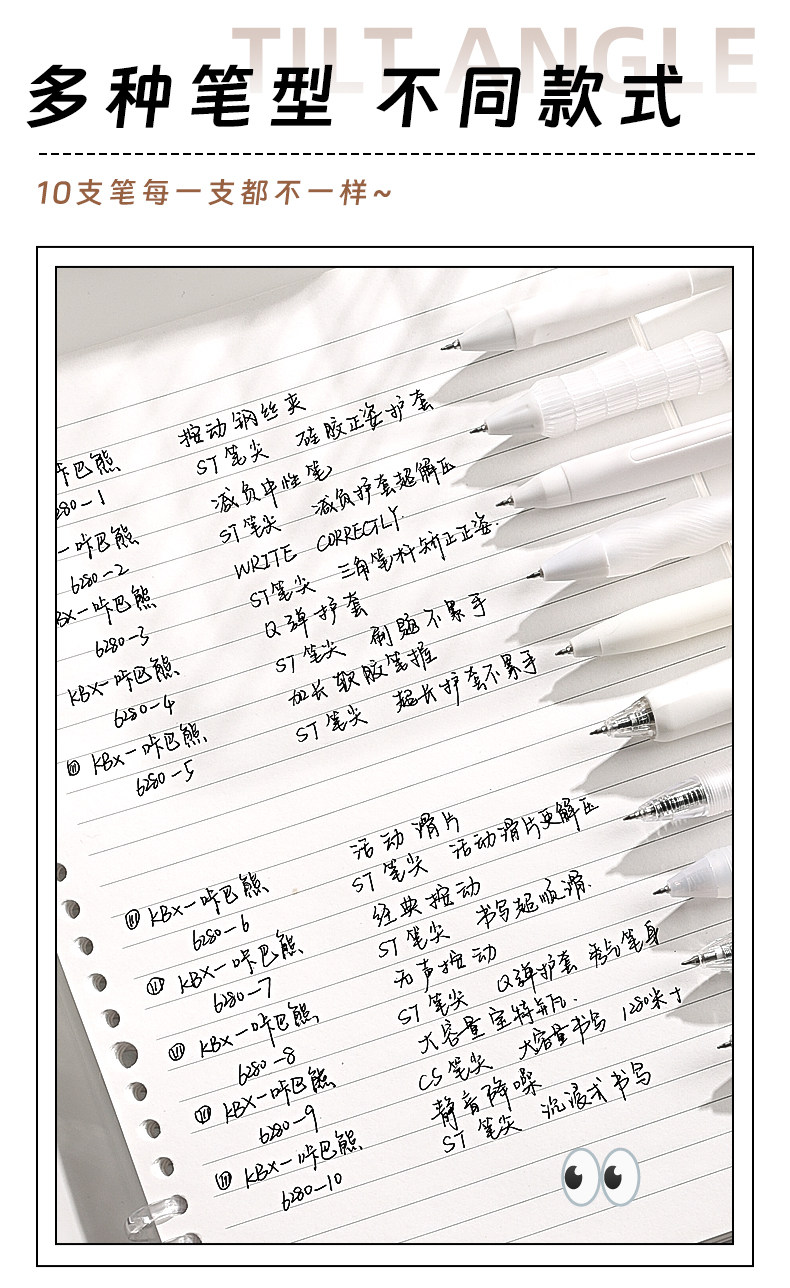 TILT ANGLE
多种笔型 不同款式
10支笔每一支都不一样~
咔巴熊 按动钢丝夹
280-1 ST笔尖 硅胶正姿护套
-咔巴熊 减负中性笔
6280-2 ST笔尖 减负护套超解压
BX-咔巴熊 WRITE CORRECTLY
6280-3 ST笔尖 三角笔杆矫正正姿.
KBX-咔巴熊 Q弹护套
6280-4 ST笔尖 刷题不累手
KBX-咔巴熊 加长软胶笔握
6280-5 ST笔尖 超长护套不累手
KBX-咔巴熊 活动滑片
6280-6 ST笔尖 活动滑片更解压
KBX-咔巴熊 经典按动
6280-7 ST笔尖 书写超顺滑.
KBX-咔巴熊 无声按动
6280-8 ST笔尖 Q弹护套 秀气笔身
KBX-咔巴熊 大容量宝特瓶.
6280-9 CS笔尖 大容量书写 1280米
KBX-咔巴熊 静音降噪
6280-10 ST笔尖 沉浸式书写